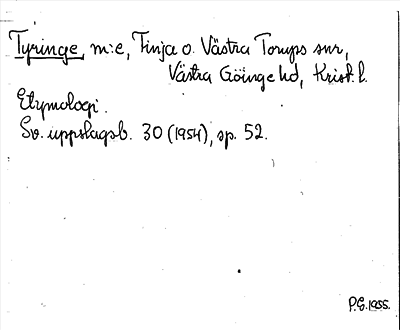 Tyringe, m:e, Finja o. Västra Torups snr,
Västra Göinge hd, Krist. l.
Etymologi.
Sv. uppslagsb. 30 (1954), sp. 52.
P.G. 1955.